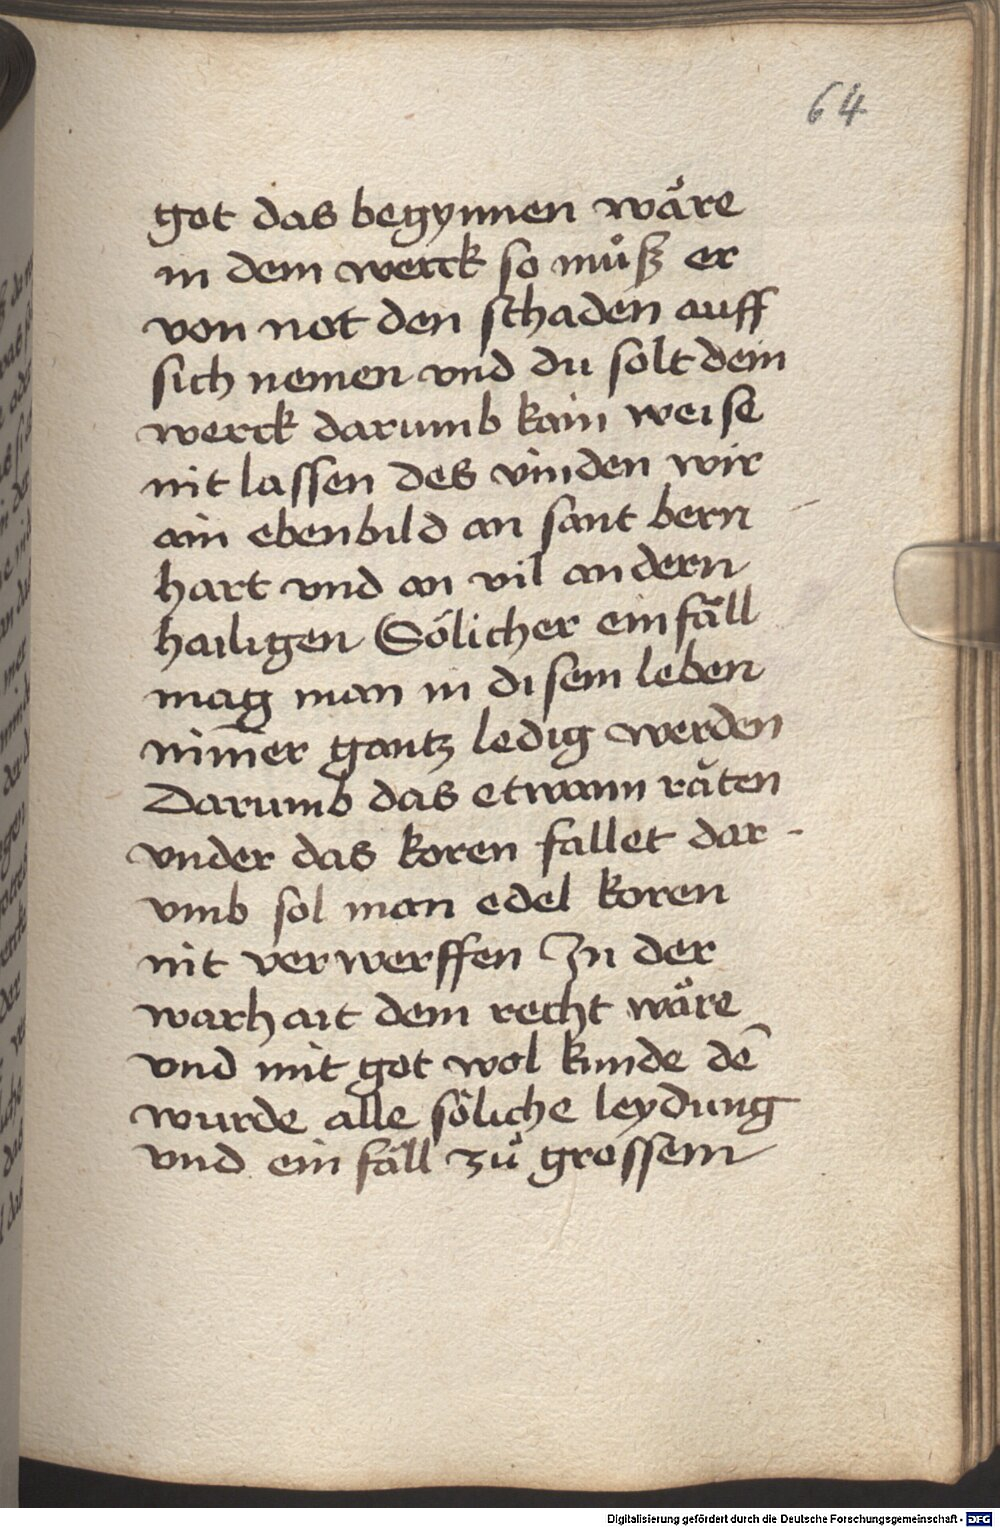 64
got das begynnen wåre
in dem werck so můß er
von not den schaden auff
sich nemen vnd du solt dein
werck darumb kain weise
nit lassen des vinden wir
ain ebenbild an sant bern
hart vnd an vil andern
hailigen Sölicher einfäll
mag man in disem leben
nim̄er gantz ledig werden
Darumb das etwann räten
vnder das koren fallet dar-
vmb sol man edel koren
nit verwerffen Zu der
warhait dem recht wäre
vnd mit got wol kunde dē
wurde alle söliche leydung
vnd einfäll zů grossem
Digitalisierung gefördert durch die Deutsche Forschungsgemeinschaft - DFG